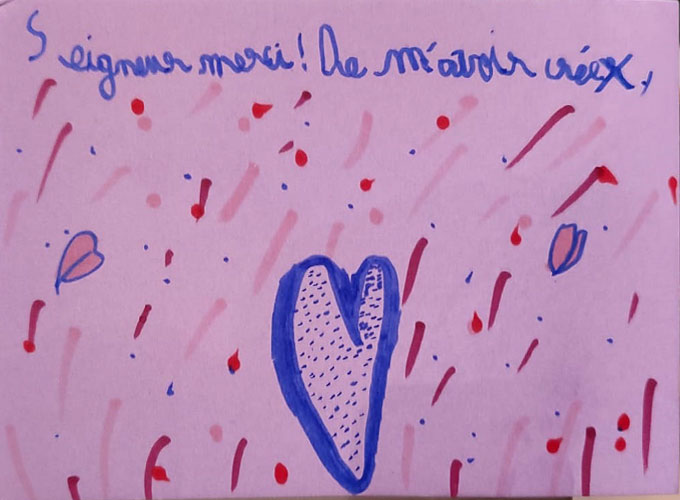 Seigneur merci! De m'avoir créex,